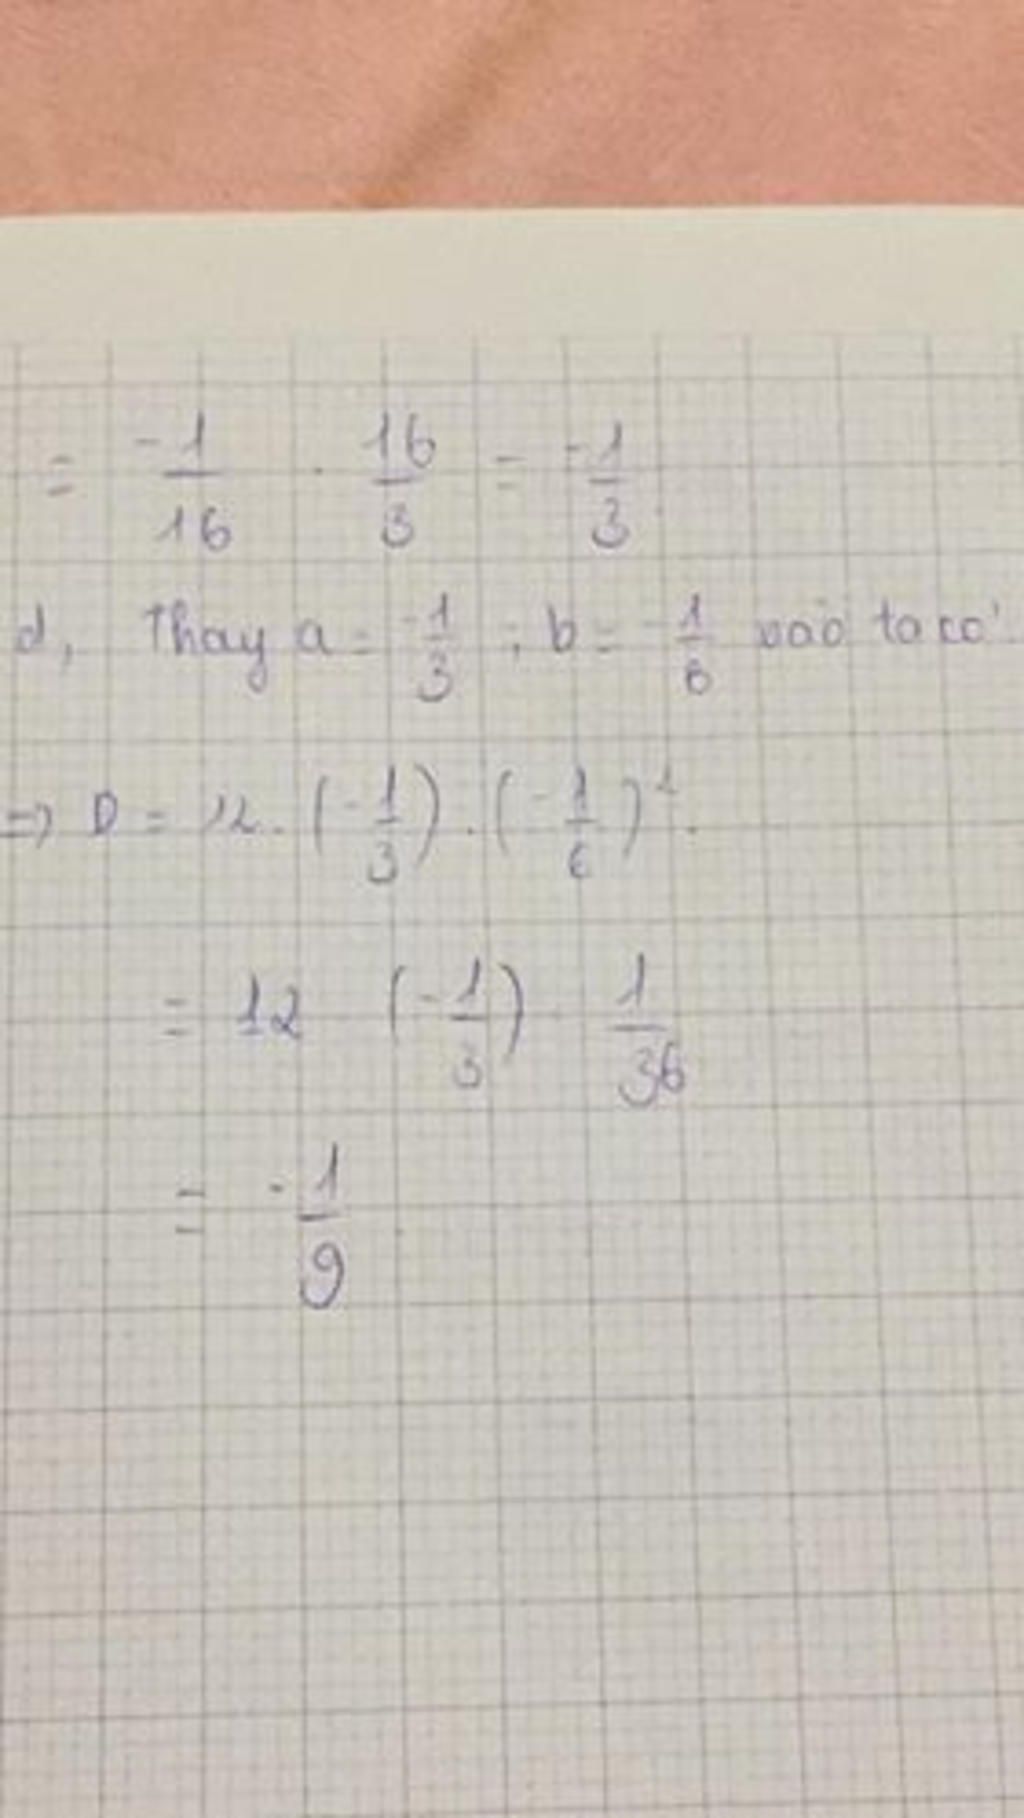 = -1/16 . 16/3 = -1/3
d, Thay a = -1/3 ; b = -1/6 vào ta có
=> D = 12. (-1/3) . (-1/6)²
= 12 (-1/3) 1/36
= -1/9